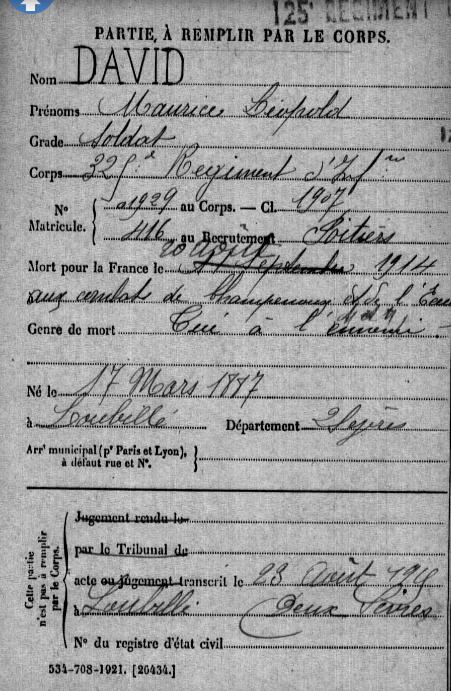 125e REGIMENT
PARTIE À REMPLIR PAR LE CORPS.
Nom DAVID
Prénoms Maurice Léopold
Grade Soldat
Corps 325e Regiment d'Infie
No a1929 au Corps. — Cl. 1907
Matricule. 416 au Recrutement Poitiers
20 août
Mort pour la France le Septembre 1914
aux combats de Champenoux
Genre de mort Tué à l'ennemi
Né le 17 Mars 1887
à Loubillé Département 2 Sèvres
Arrt municipal (pr Paris et Lyon),
à défaut rue et No.
Cette partie n'est pas à remplir par le Corps.
Jugement rendu le
par le Tribunal de
acte ou jugement transcrit le 23 Août
à Loubillé Deux Sèvres
No du registre d'état civil
534-708-1921. [26434.]